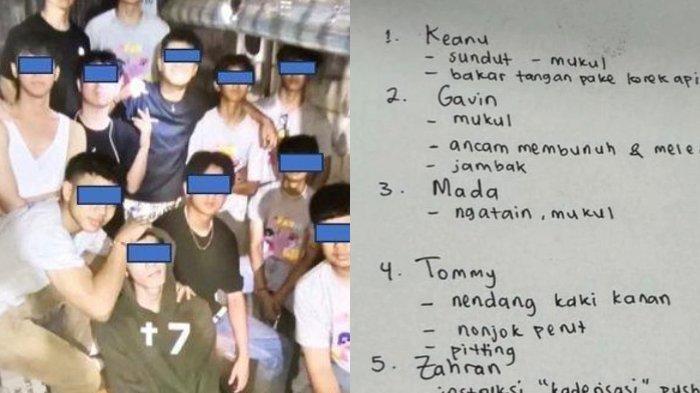 1. Keanu
- sundut - mukul
- bakar tangan pake korek api
2. Gavin
- mukul
- ancam membunuh &
- jambak
3. Mada
- ngatain, mukul
4. Tommy
- nendang kaki kanan
- nonjok perut
- pitting
5. Zahran
instruksi "kaderisasi" push
+7